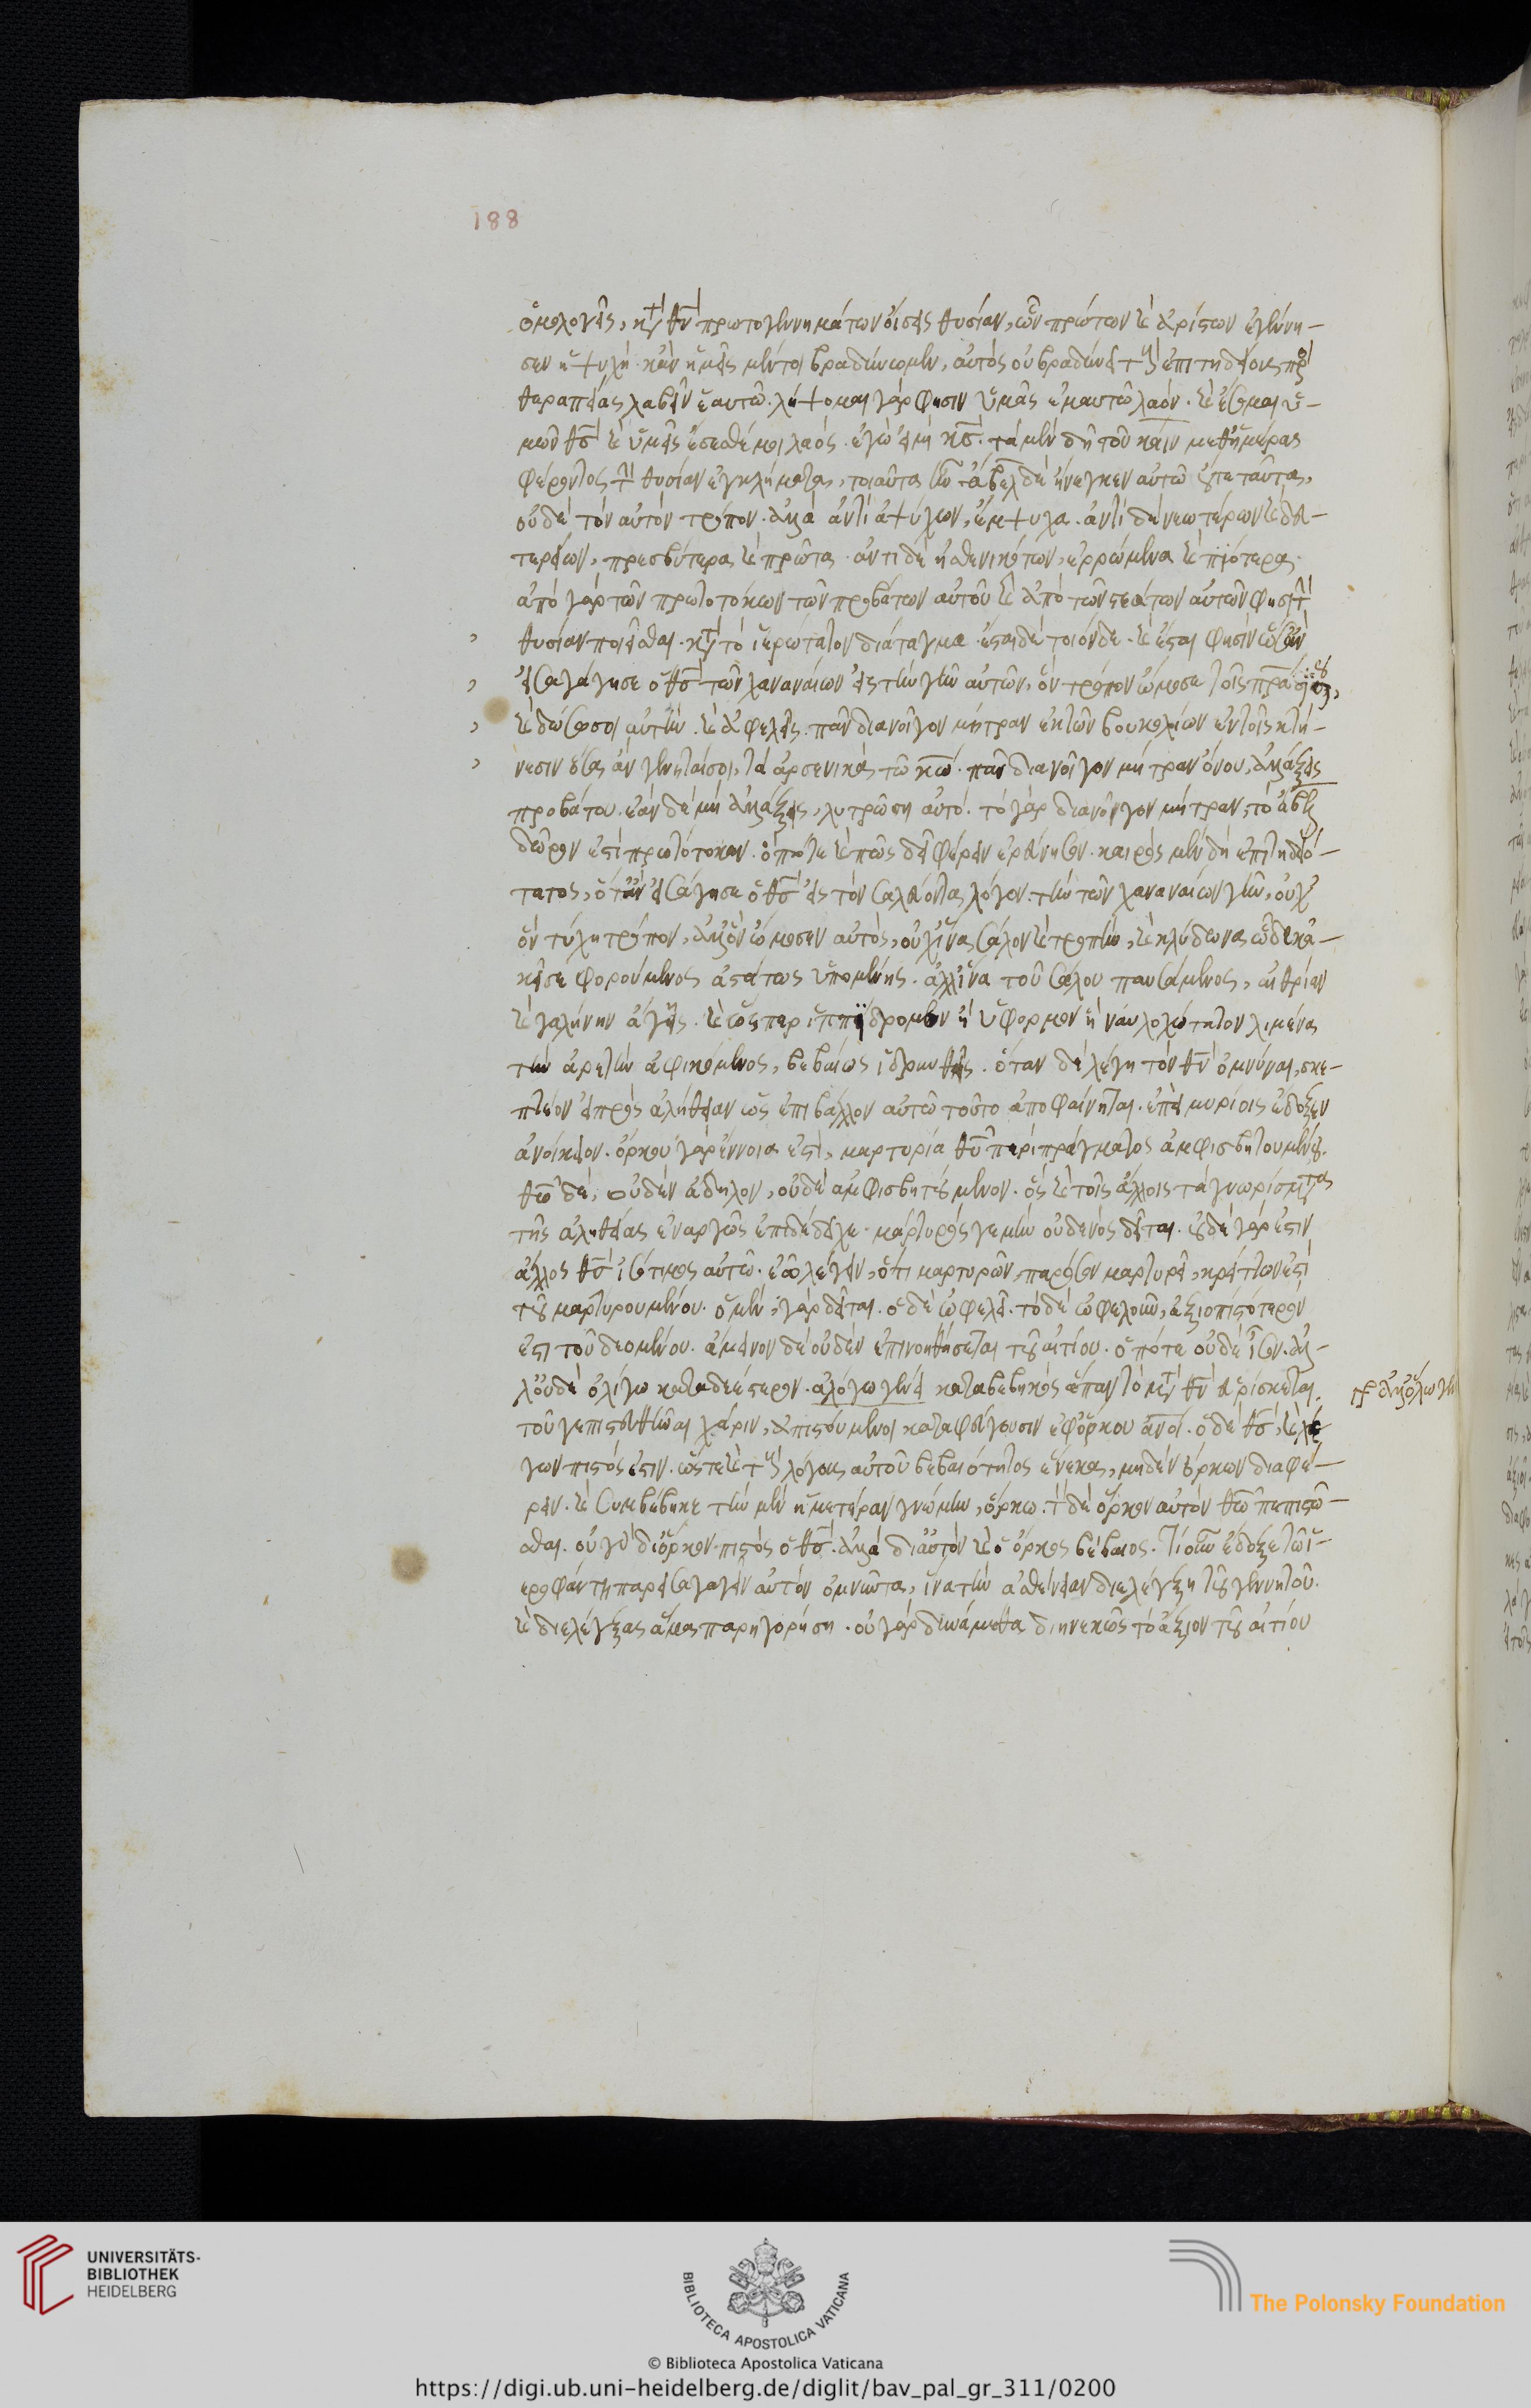 188
ὁμολογεῖς, κατὰ τὴν θν πρωτογεννημάτων οἴσεις θυσίαν, ὧν πρώτων καὶ ἀρίστων ἐγέννη-
σεν ἡ ψυχή. κἂν ἡμεῖς μέντοι βραδύνωμεν, αὐτὸς οὐ βραδύνει τοὺς ἐπιτηδείους πρὸς
θεραπείας λαβεῖν ἑαυτῶ. λήψομαι γάρ φησιν ὑμᾶς ἐμαυτῶ λαόν. καὶ ἔσομαι ὑ-
μῶν θς καὶ ὑμεῖς ἔσεσθέ μοι λαός. ἐγώ εἰμι κς. τὰ μὲν δὴ τοῦ κάϊν μεθ' ἡμέρας
φέροντος τὴν θυσίαν ἐγκλήματα, τοιαῦτα ἦν. ἄβελ δὲ ἤνεγκεν αὐτῶ οὔτε ταῦτα,
οὐδὲ τὸν αὐτὸν τρόπον. ἀλλὰ ἀντὶ ἀψύχων, ἔμψυχα. ἀντὶ δὲ νεωτέρων καὶ δευ-
τερείων, πρεσβύτερα καὶ πρῶτα. ἀντὶ δὲ ἠσθενηκότων, ἐρρωμένα καὶ πιότερα.
ἀπὸ γὰρ τῶν πρωτοτόκων τῶν προβάτων αὐτοῦ καὶ ἀπὸ τῶν στεάτων αὐτῶν φησὶ τὴν
θυσίαν ποιεῖσθαι. κατὰ τὸ ἱερώτατον διάταγμα. ἔστι δὲ τοιόνδε. καὶ ἔσται φησὶν ὡς ἂν
εἰσαγάγη σε ὁ θς τῶν χαναναίων εἰς τὴν γῆν αὐτῶν, ὃν τρόπον ὤμοσε τοῖς πράσι σου,
καὶ δώσω σοι αὐτήν. καὶ ἀφελεῖς πᾶν διανοῖγον μήτραν ἐκ τῶν βουκολίων ἐν τοῖς κτή-
νεσιν ὅσα ἂν γένηταί σοι, τὰ ἀρσενικὰ τῶ κω. πᾶν διανοῖγον μήτραν ὄνου, ἀλλάξεις
προβάτου. ἐὰν δὲ μὴ ἀλλάξης, λυτρώση αὐτό. τὸ γὰρ διανοῖγον μήτραν, τὸ ἄβελ
δῶρον ἐστὶ πρωτότοκον. ὁπότε καὶ πῶς δεῖ φέρειν ἐρεύνησον. καιρὸς μὲν δὴ ἐπιτηδειό-
τατος, ὅταν εἰσάγη σε ὁ θς εἰς τὸν σαλεύοντα λόγον. τὴν τῶν χαναναίων γῆν, οὐχ
ὃν τύχη τρόπον, ἀλλ' ὃν ὤμοσεν αὐτός, οὐχ ἵνα σάλον καὶ τροπὴν, καὶ κλύδωνα ὧδε κἀ-
κεῖσε φορούμενος ἀστάτως ὑπομένης. ἀλλ' ἵνα τοῦ σάλου παυσάμενος, αἰθρίαν
καὶ γαλήνην ἄγης. καὶ ὥσπερ ἱππήδρομον ἢ ὕφορμον ἢ ναυλοχώτατον λιμένα
τὴν ἀρετὴν ἀφικόμενος, βεβαίως ἱδρυνθῆς. ὅταν δὲ λέγη τὸν θν ὀμνύναι, σκε-
πτέον εἰ πρὸς ἀλήθειαν ὡς ἐπιβάλλον αὐτῶ τοῦτο ἀποφαίνηται. ἐπεὶ μυρίοις ἔδοξεν
ἀνοίκειον. ὅρκου γὰρ ἔννοια ἐστὶ, μαρτυρία θυ περὶ πράγματος ἀμφισβητουμένου.
θω δὲ, οὐδὲν ἄδηλον, οὐδὲ ἀμφισβητούμενον. ὃς καὶ τοῖς ἄλλοις τὰ γνωρίσματα
τῆς ἀληθείας ἐναργῶς ἐπιδέδειχε. μάρτυρός γε μὴν οὐδενὸς δεῖται. οὐδὲ γὰρ ἔστιν
ἄλλος θς ἰσότιμος αὐτῶ. ἐῶ λέγειν, ὅτι μαρτυρῶν, παρόσον μαρτυρεῖ, κρείττων ἐστὶ
τοῦ μαρτυρουμένου. ὁ μὲν, γὰρ δεῖται. ὁ δὲ ὠφελεῖ. τὸ δὲ ὠφελοῦν, ἀξιοπιστότερόν
ἐστι τοῦ δεομένου. ἄμεινον δὲ οὐδὲν ἐπινοηθήσεται τοῦ αἰτίου. ὁπότε οὐδὲ ἴσον. ἀλ-
λ' οὐδὲ ὀλίγω καταδεέστερον. ἀλόγω γένει καταβεβηκὸς ἅπαν τὸ μετὰ θν εὑρίσκεται.
γρ ἀλλ' ὅλω γένει
τοῦ γε πιστευθῆναι χάριν, ἀπιστούμενοι καταφεύγουσιν ἐφ' ὅρκου ἄνοι. ὁ δὲ θς, καὶ λέ-
γων πιστός ἐστιν. ὥστε καὶ τοὺς λόγους αὐτοῦ βεβαιότητος ἕνεκα, μηδὲν ὅρκων διαφέ-
ρειν. καὶ συμβέβηκε τὴν μὲν ἡμετέραν γνώμην, ὅρκω. τὸν δὲ ὅρκον αὐτὸν θω πεπιστῶ-
σθαι. οὐ γὰρ δι' ὅρκον πιστὸς ὁ θς. ἀλλὰ δι' αὐτὸν καὶ ὁ ὅρκος βέβαιος. τί οὖν ἔδοξε τῶ ἱ-
εροφάντη παρεισαγαγεῖν αὐτὸν ὀμνύντα, ἵνα τὴν ἀσθένειαν διελέγξη τοῦ γεννητοῦ.
καὶ διελέγξας ἅμα παρηγορήση. οὐ γὰρ δυνάμεθα διηνεκῶς τὸ ἄξιον τοῦ αἰτίου
UNIVERSITÄTS-
BIBLIOTHEK
HEIDELBERG
BIBLIOTECA APOSTOLICA VATICANA
The Polonsky Foundation
© Biblioteca Apostolica Vaticana
https://digi.ub.uni-heidelberg.de/diglit/bav_pal_gr_311/0200